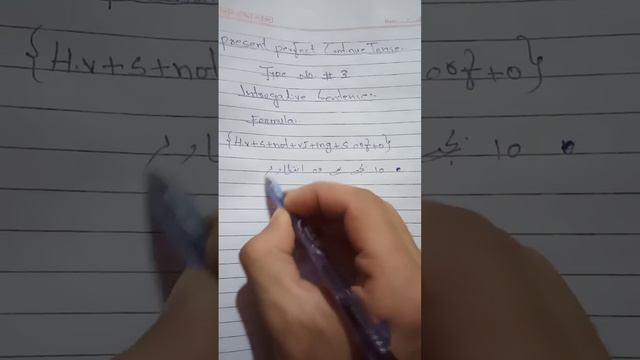 present perfect Continue Tense.
Type No # 3
Introgative Sentence.
Formula.
{H.v+s+not+v1+ing+s or f+o}
10 بجے سے وہ انتظار